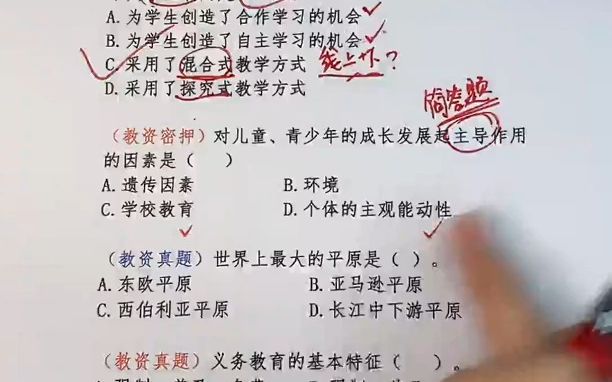 A.为学生创造了合作学习的机会
B.为学生创造了自主学习的机会
C.采用了混合式教学方式 线上下?
D.采用了探究式教学方式
简答题
(教资密押)对儿童、青少年的成长发展起主导作用
的因素是( )
A.遗传因素 B.环境
C.学校教育 D.个体的主观能动性
(教资真题)世界上最大的平原是( )。
A.东欧平原 B.亚马逊平原
C.西伯利亚平原 D.长江中下游平原
(教资真题)义务教育的基本特征( )。